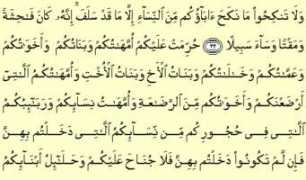 وَلَا تَنكِحُوا۟ مَا نَكَحَ ءَابَآؤُكُم مِّنَ ٱلنِّسَآءِ إِلَّا مَا قَدْ سَلَفَ ۚ إِنَّهُۥ كَانَ فَـٰحِشَةً
وَمَقْتًا وَسَآءَ سَبِيلًا ۝٢٢ حُرِّمَتْ عَلَيْكُمْ أُمَّهَـٰتُكُمْ وَبَنَاتُكُمْ وَأَخَوَٰتُكُمْ
وَعَمَّـٰتُكُمْ وَخَـٰلَـٰتُكُمْ وَبَنَاتُ ٱلْأَخِ وَبَنَاتُ ٱلْأُخْتِ وَأُمَّهَـٰتُكُمُ ٱلَّـٰتِىٓ
أَرْضَعْنَكُمْ وَأَخَوَٰتُكُم مِّنَ ٱلرَّضَـٰعَةِ وَأُمَّهَـٰتُ نِسَآئِكُمْ وَرَبَـٰٓئِبُكُمُ
ٱلَّـٰتِى فِى حُجُورِكُم مِّن نِّسَآئِكُمُ ٱلَّـٰتِى دَخَلْتُم بِهِنَّ
فَإِن لَّمْ تَكُونُوا۟ دَخَلْتُم بِهِنَّ فَلَا جُنَاحَ عَلَيْكُمْ وَحَلَـٰٓئِلُ أَبْنَآئِكُمُ